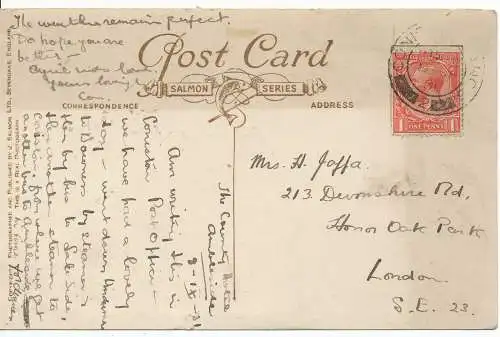 The weather remains perfect.
Do hope you are
better –
yours lovingly
Con.
Post Card
SALMON SERIES
CORRESPONDENCE
ADDRESS
ONE PENNY
The County Hotel
Ambleside
9-IX-31
Am writing this in
Coniston Post Office –
we have had a lovely
day – went down Windermere
to Bowness by steamer
then by bus to Lake Side,
then another steamer to
Coniston from where we get
another bus to Ambleside
Mrs. H. Jaffa.
213 Devonshire Rd,
Honor Oak Park
London.
S.E. 23.
PHOTOGRAPHED AND PUBLISHED BY J. SALMON LTD., SEVENOAKS, ENGLAND.